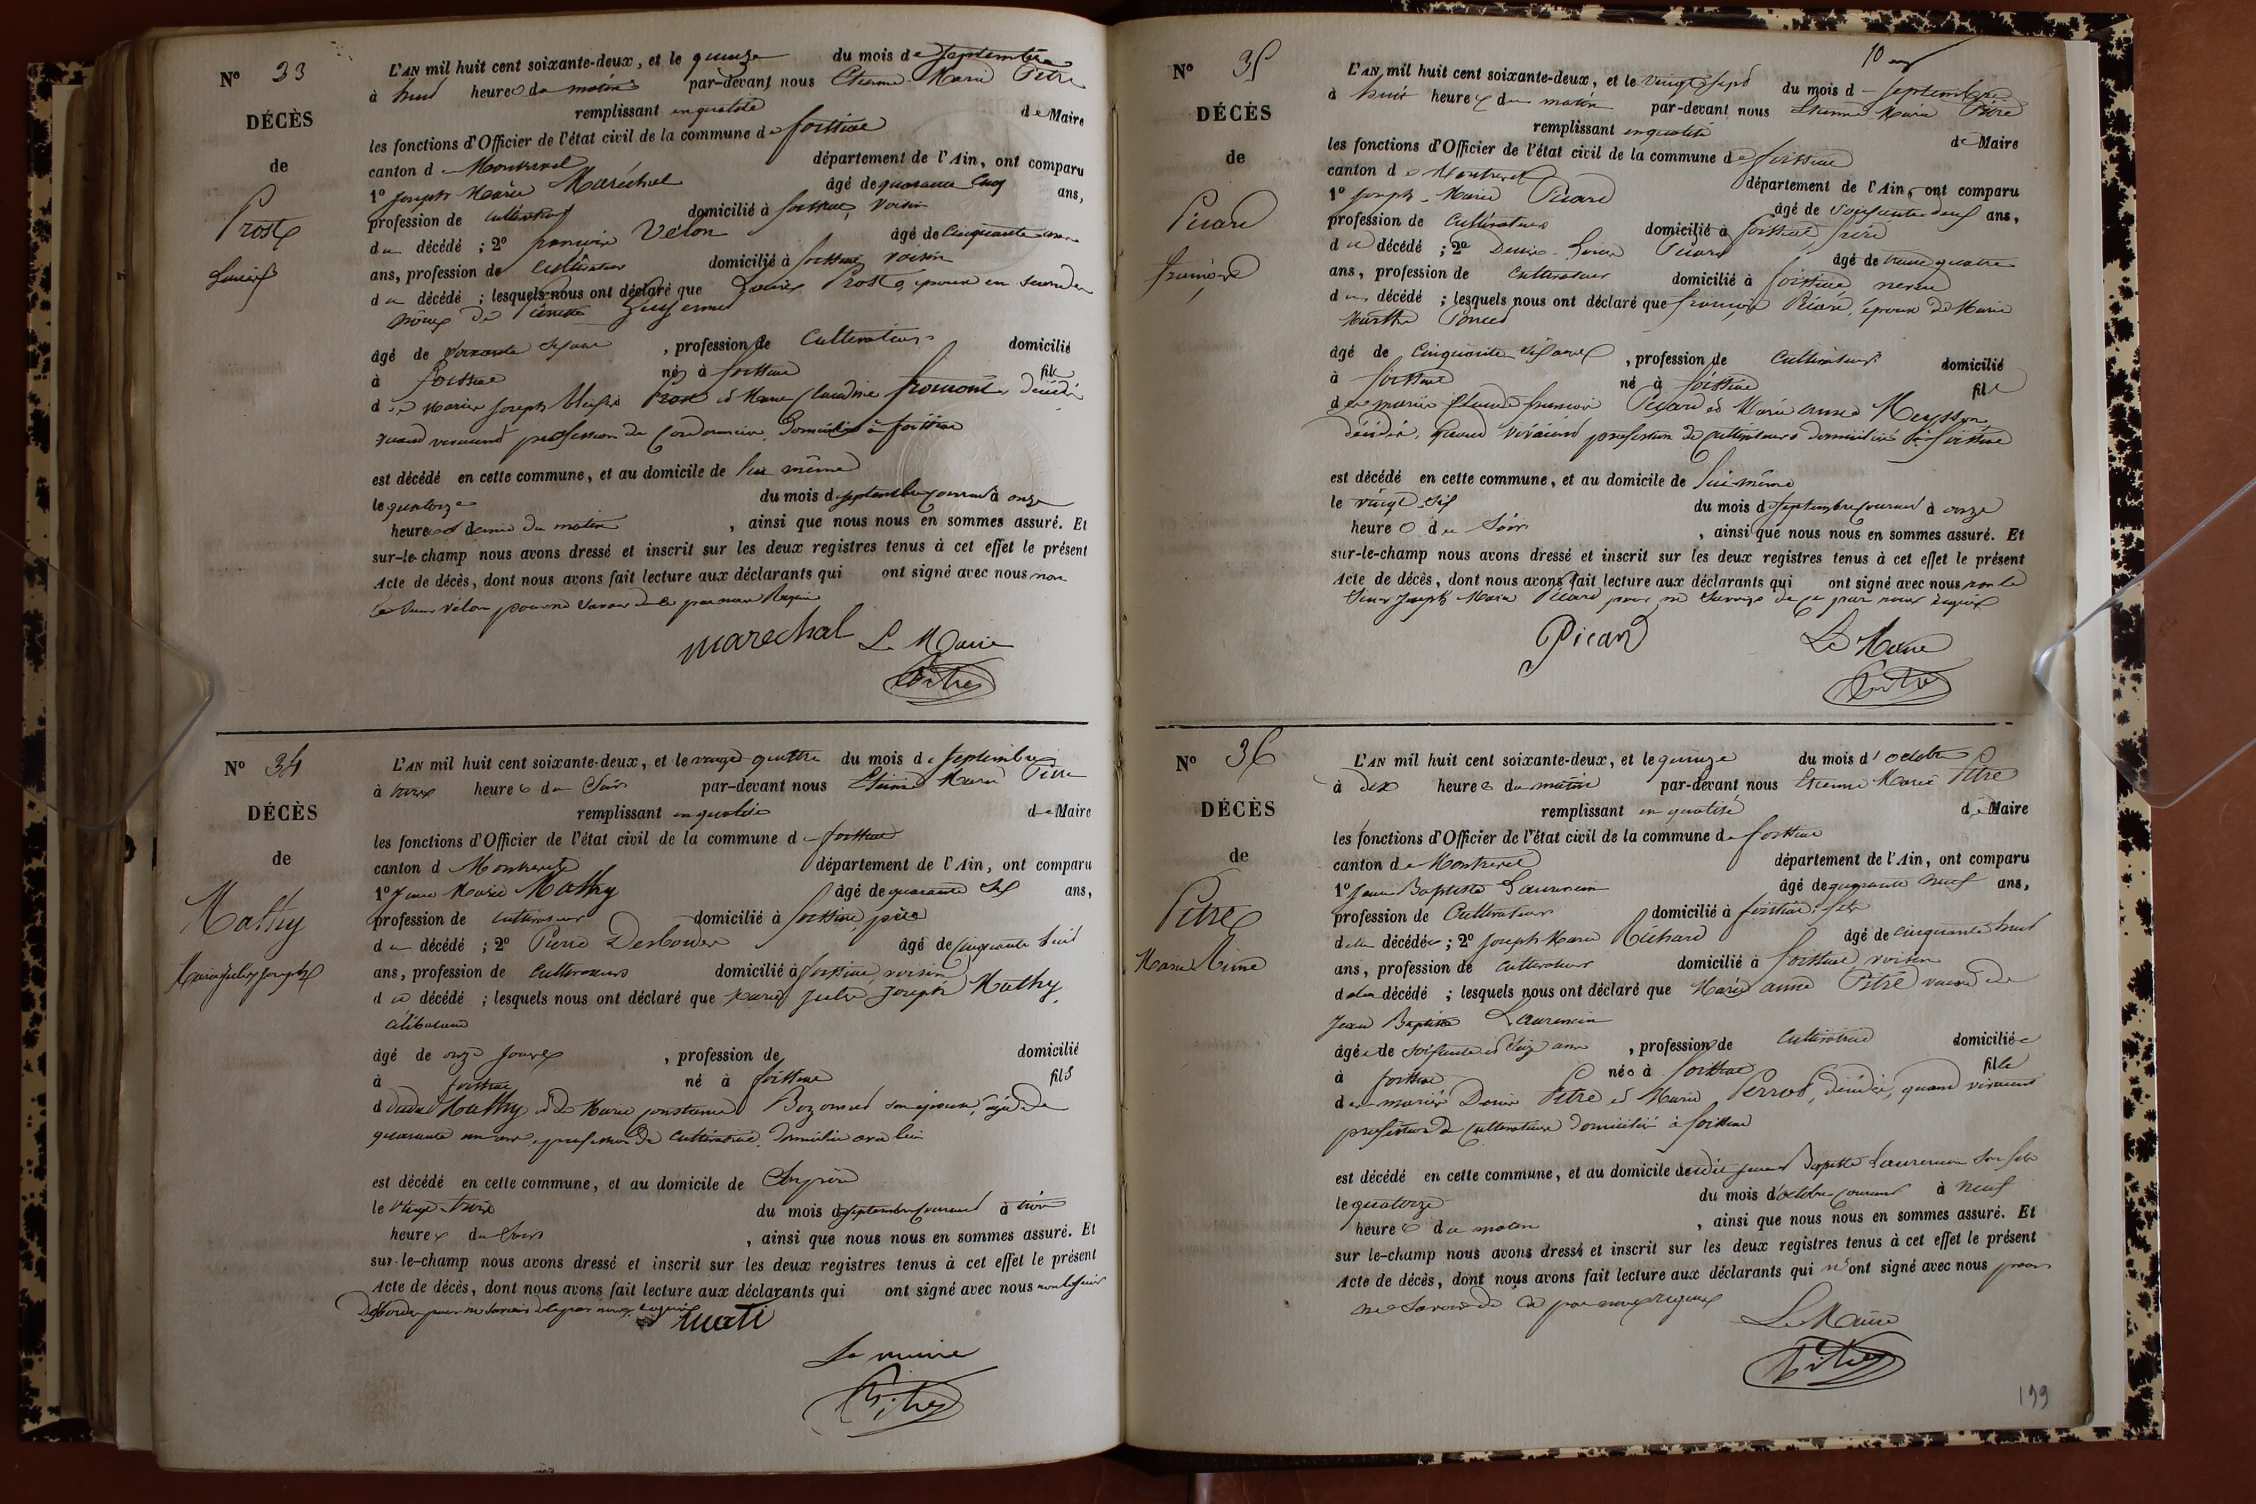 N° 33
DÉCÈS
de
Prost
Louis
L'AN mil huit cent soixante-deux, et le quinze du mois de septembre
à huit heures du matin par-devant nous Etienne Marie Pitre
remplissant en qualité de Maire
les fonctions d'Officier de l'état civil de la commune de foissiat
canton d Montrevel département de l'Ain, ont comparu
1° Joseph Marie Maréchal âgé de quarante cinq ans,
profession de cultivateur domicilié à foissiat, voisin
du décédé ; 2° françois Vélon âgé de cinquante
ans, profession de cultivateur domicilié à foissiat voisin
du décédé ; lesquels nous ont déclaré que Louis Prost, époux en secondes
nôces de
âgé de soixante , profession de Cultivateur domicilié
à foissiat né à foissiat fils
de Marie Joseph Prost et Marie Claudine fromont décédés
quand vivaient profession de Cordonnier, domiciliés à foissiat
est décédé en cette commune, et au domicile de lui même
le quatorze du mois de septembre courant à onze
heures et demie du matin , ainsi que nous nous en sommes assuré. Et
sur-le-champ nous avons dressé et inscrit sur les deux registres tenus à cet effet le présent
Acte de décès, dont nous avons fait lecture aux déclarants qui ont signé avec nous non
le sieur Vélon pour ne savoir de ce par nous Requis
marechal Le Maire
Pitre
N° 34
DÉCÈS
de
Mathy
Marie Jules Joseph
L'AN mil huit cent soixante-deux, et le vingt quatre du mois de septembre
à heures du Soir par-devant nous Etienne Marie Pitre
remplissant en qualité de Maire
les fonctions d'Officier de l'état civil de la commune de foissiat
canton d Montrevel département de l'Ain, ont comparu
1° Marie Mathy âgé de quarante six ans,
profession de cultivateur domicilié à foissiat, père
du décédé ; 2° Pierre Desbordes âgé de cinquante huit
ans, profession de cultivateur domicilié à foissiat, voisin
du décédé ; lesquels nous ont déclaré que Marie Jules Joseph Mathy,
célibataire
âgé de onze jours , profession de domicilié
à foissiat né à foissiat fils
dudit Mathy et de Marie Constance son épouse, âgée de
quarante un ans, profession de cultivatrice, domiciliée avec lui
est décédé en cette commune, et au domicile de Son père
le vingt trois du mois de septembre courant à trois
heures du Soir , ainsi que nous nous en sommes assuré. Et
sur-le-champ nous avons dressé et inscrit sur les deux registres tenus à cet effet le présent
Acte de décès, dont nous avons fait lecture aux déclarants qui ont signé avec nous non le sieur
Desbordes pour ne savoir de ce par nous requis
mati
Le maire
Pitre
10
N° 35
DÉCÈS
de
Picard
françois
L'AN mil huit cent soixante-deux, et le vingt sept du mois d septembre
à huit heures du matin par-devant nous Etienne Marie Pitre
remplissant en qualité de Maire
les fonctions d'Officier de l'état civil de la commune de foissiat
canton de Montrevel département de l'Ain, ont comparu
1° Joseph Marie Picard âgé de soixante deux ans,
profession de Cultivateur domicilié à foissiat, frère
du décédé ; 2° Denis Picard âgé de trente quatre
ans, profession de cultivateur domicilié à foissiat neveu
du décédé ; lesquels nous ont déclaré que françois Picard, époux de Marie
Marthe Poncet
âgé de cinquante six ans , profession de Cultivateur domicilié
à foissiat né à foissiat fils
de mariés Claude françois Picard et Marie anne Meysson
décédés, quand vivaient profession de cultivateurs domiciliés à foissiat
est décédé en cette commune, et au domicile de lui même
le vingt six du mois de septembre courant à onze
heures du Soir , ainsi que nous nous en sommes assuré. Et
sur-le-champ nous avons dressé et inscrit sur les deux registres tenus à cet effet le présent
Acte de décès, dont nous avons fait lecture aux déclarants qui ont signé avec nous non le
Sieur Joseph Marie Picard pour ne savoir de ce par nous requis
Picard Le Maire
Pitre
N° 36
DÉCÈS
de
Pitre
Marie Anne
L'AN mil huit cent soixante-deux, et le quinze du mois d'octobre
à dix heures du matin par-devant nous Etienne Marie Pitre
remplissant en qualité de Maire
les fonctions d'Officier de l'état civil de la commune de foissiat
canton de Montrevel département de l'Ain, ont comparu
1° Jean Baptiste Laurencin âgé de quarante neuf ans,
profession de Cultivateur domicilié à foissiat, fils
de la décédée ; 2° Joseph Marie Richard âgé de cinquante huit
ans, profession de cultivateur domicilié à foissiat voisin
de la décédé ; lesquels nous ont déclaré que Marie anne Pitre veuve de
Jean Baptiste Laurencin
âgée de soixante et seize ans , profession de cultivatrice domiciliée
à foissiat née à foissiat fille
de mariés Denis Pitre et Marie Perret, décédés, quand vivaient
profession de cultivateurs domiciliés à foissiat
est décédé en cette commune, et au domicile dudit Jean Baptiste Laurencin Son fils
le quatorze du mois d'octobre courant à neuf
heures du matin , ainsi que nous nous en sommes assuré. Et
sur le-champ nous avons dressé et inscrit sur les deux registres tenus à cet effet le présent
Acte de décès, dont nous avons fait lecture aux déclarants qui n'ont signé avec nous pour
ne Savoir de ce par nous requis
Le Maire
Pitre
199